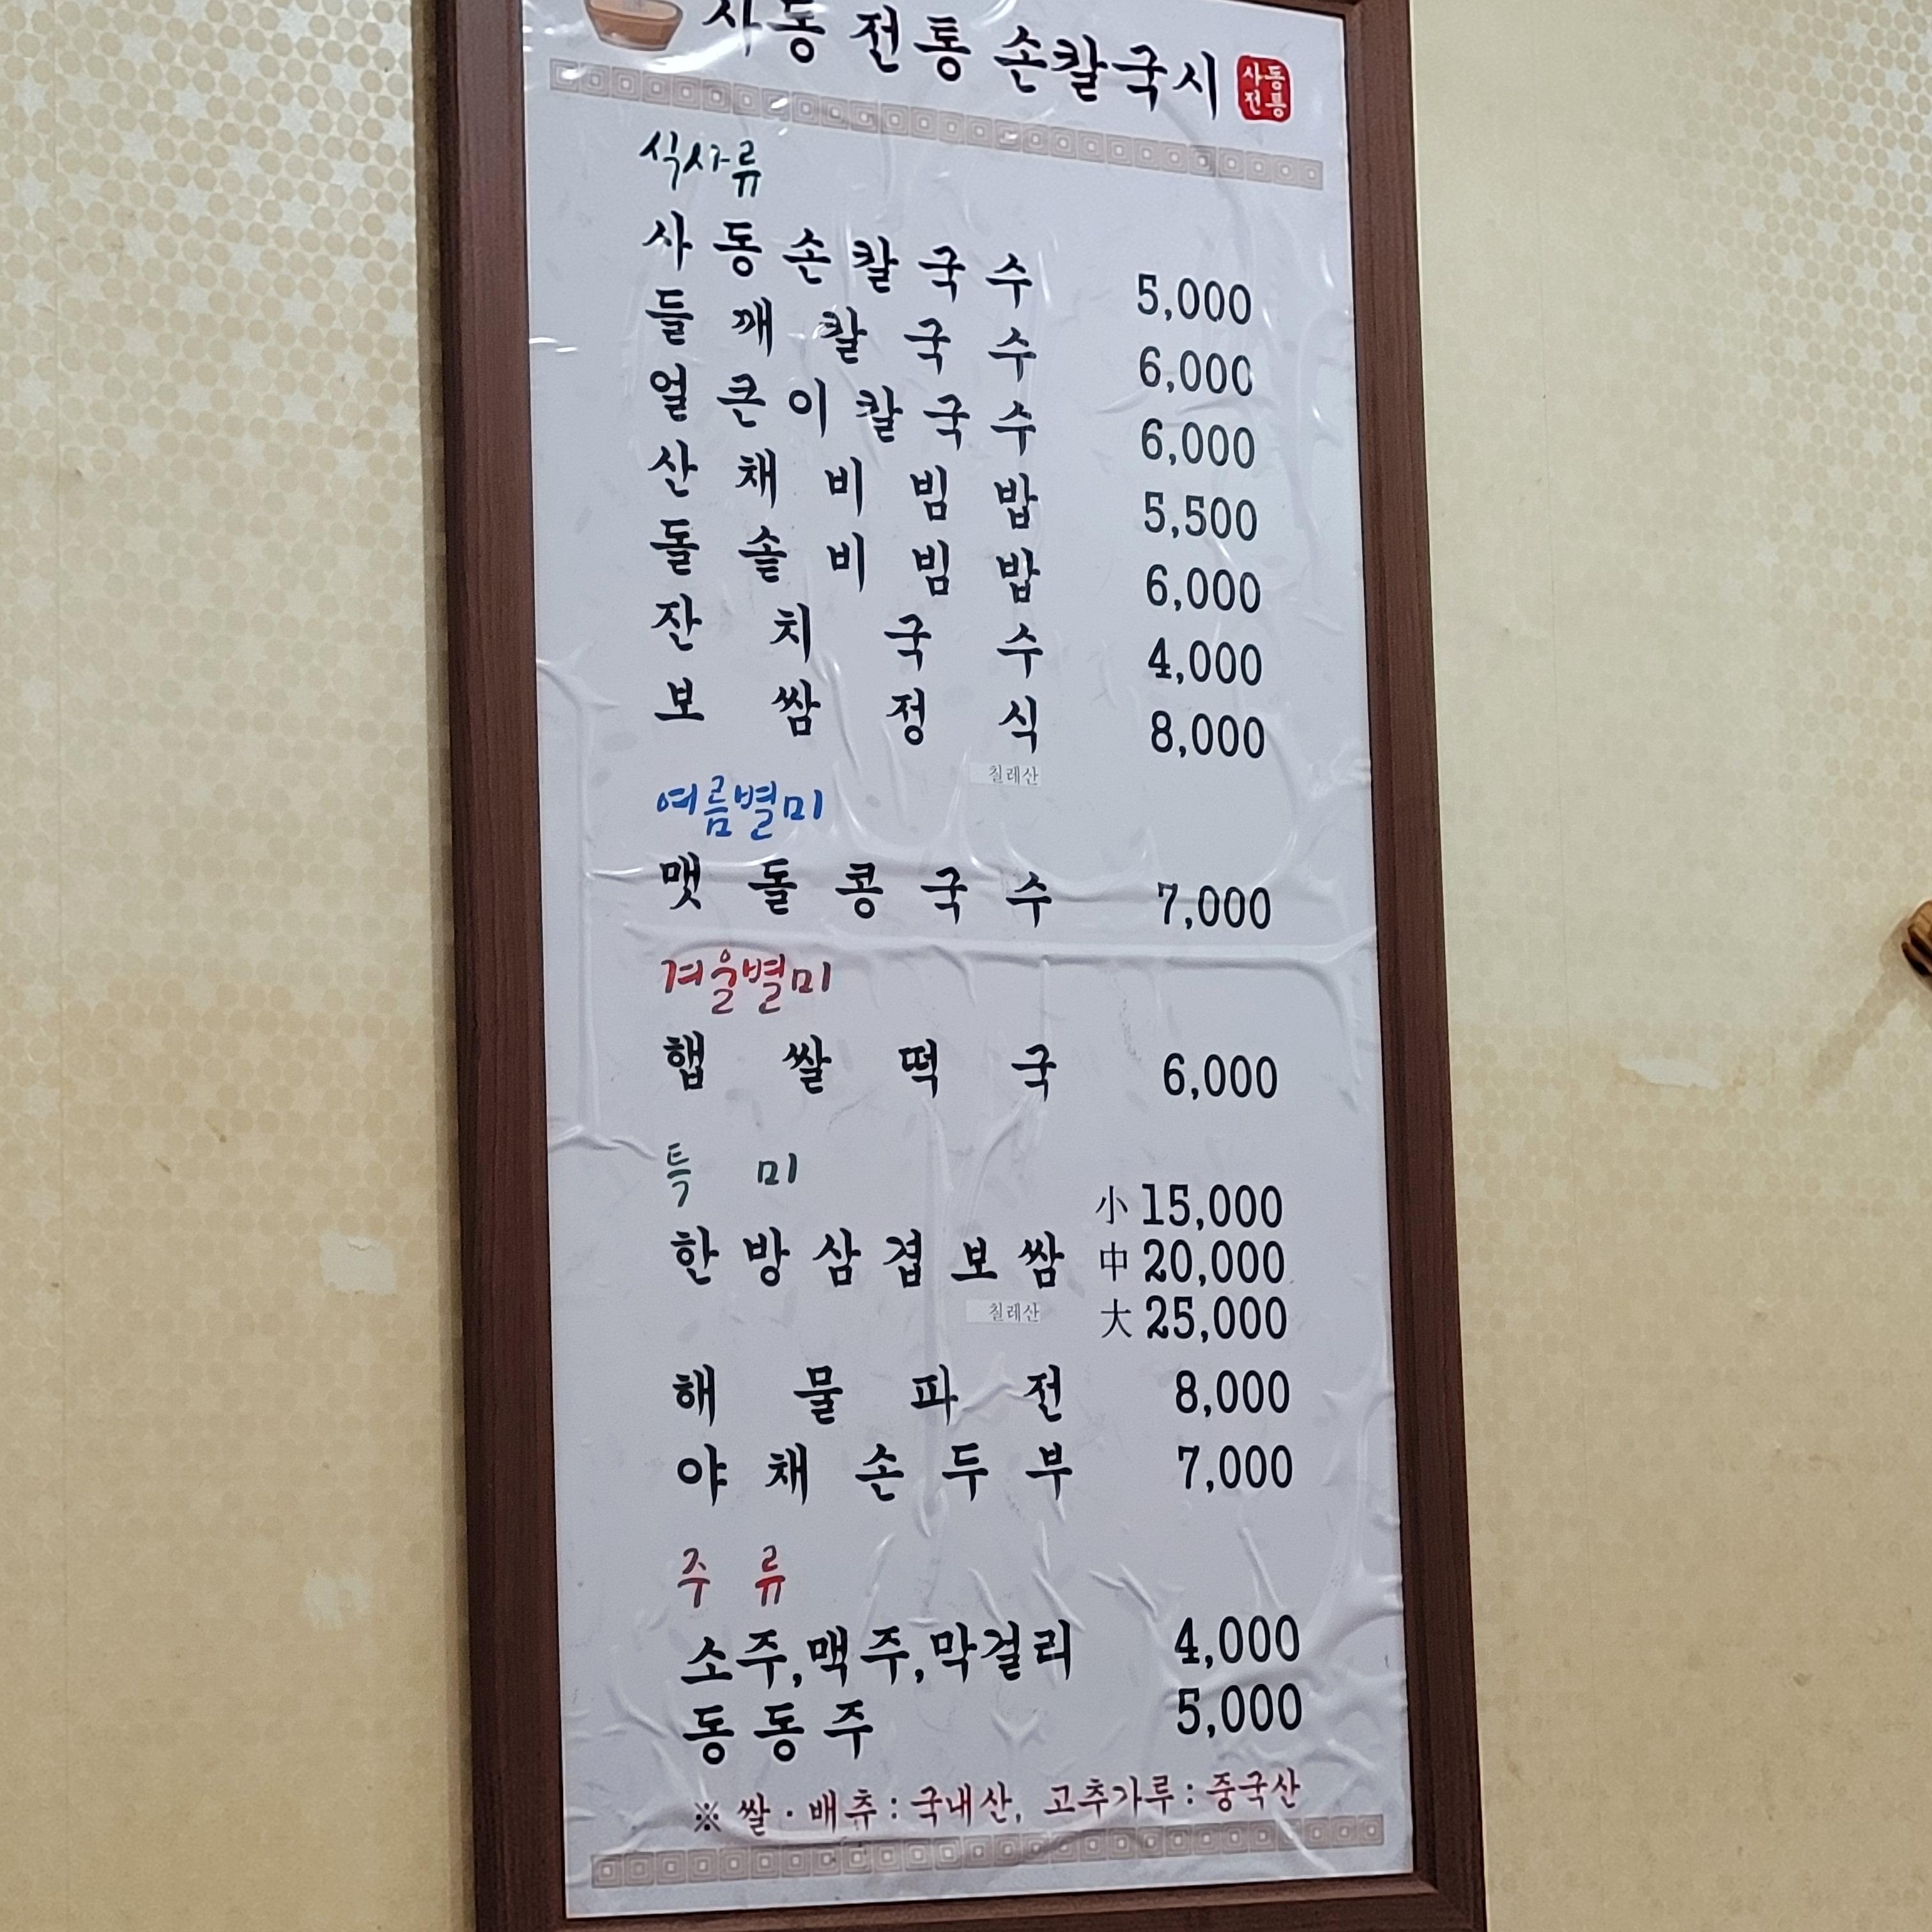 사동 전통 손칼국시
사동
전통
식사류
사동손칼국수 5,000
들깨칼국수 6,000
얼큰이칼국수 6,000
산채비빔밥 5,500
돌솥비빔밥 6,000
잔치국수 4,000
보쌈정식 8,000
칠레산
여름별미
맷돌콩국수 7,000
겨울별미
햅쌀떡국 6,000
특미
小 15,000
한방삼겹보쌈 中 20,000
칠레산 大 25,000
해물파전 8,000
야채손두부 7,000
주류
소주,맥주,막걸리 4,000
동동주 5,000
※ 쌀·배츄 : 국내산, 고추가루 : 중국산